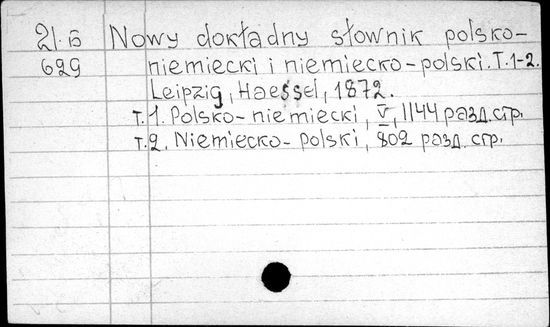 21. б Nowy dokładny słownik polsko-
629 niemiecki i niemiecko-polski. T.1-2.
Leipzig, Haessel, 1872.
т.1. Polsko-niemiecki, V, 1144 разд. стр.
т.2. Niemiecko-polski, 802 разд. стр.